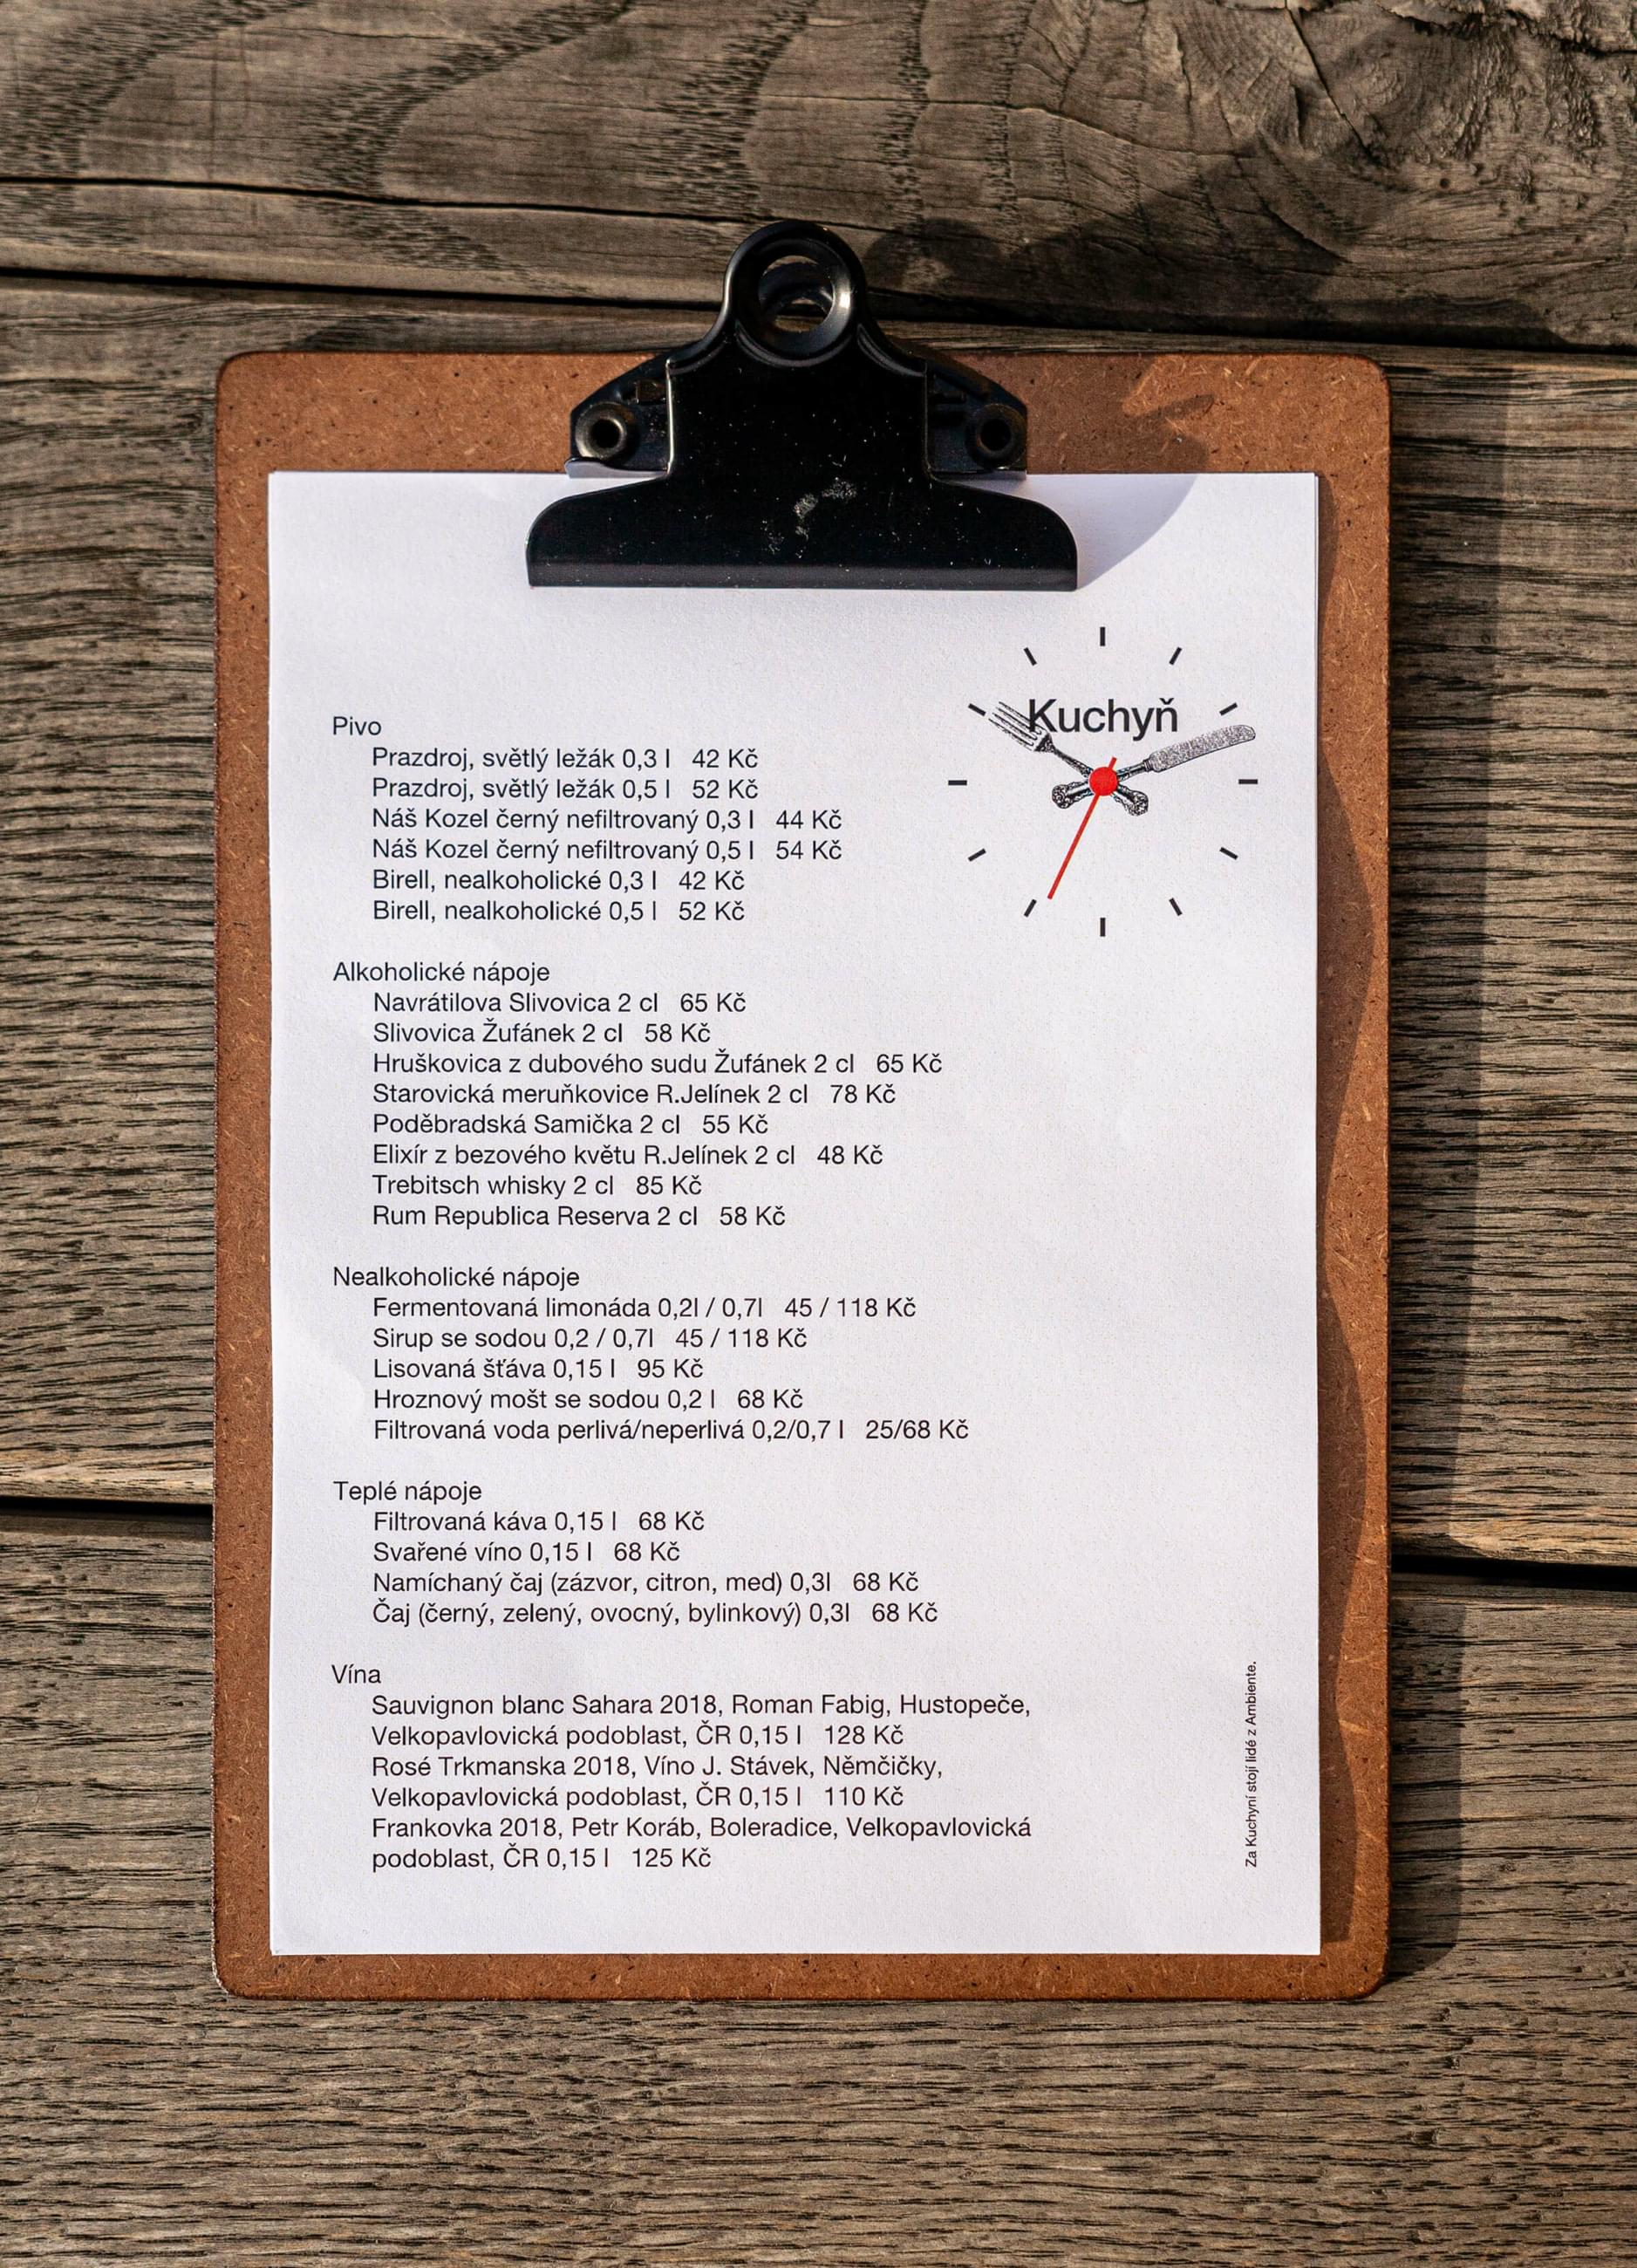 Kuchyň
Pivo
Prazdroj, světlý ležák 0,3 l 42 Kč
Prazdroj, světlý ležák 0,5 l 52 Kč
Náš Kozel černý nefiltrovaný 0,3 l 44 Kč
Náš Kozel černý nefiltrovaný 0,5 l 54 Kč
Birell, nealkoholické 0,3 l 42 Kč
Birell, nealkoholické 0,5 l 52 Kč
Alkoholické nápoje
Navrátilova Slivovica 2 cl 65 Kč
Slivovica Žufánek 2 cl 58 Kč
Hruškovica z dubového sudu Žufánek 2 cl 65 Kč
Starovická meruňkovice R.Jelínek 2 cl 78 Kč
Poděbradská Samička 2 cl 55 Kč
Elixír z bezového květu R.Jelínek 2 cl 48 Kč
Trebitsch whisky 2 cl 85 Kč
Rum Republica Reserva 2 cl 58 Kč
Nealkoholické nápoje
Fermentovaná limonáda 0,2l / 0,7l 45 / 118 Kč
Sirup se sodou 0,2 / 0,7l 45 / 118 Kč
Lisovaná šťáva 0,15 l 95 Kč
Hroznový mošt se sodou 0,2 l 68 Kč
Filtrovaná voda perlivá/neperlivá 0,2/0,7 l 25/68 Kč
Teplé nápoje
Filtrovaná káva 0,15 l 68 Kč
Svařené víno 0,15 l 68 Kč
Namíchaný čaj (zázvor, citron, med) 0,3l 68 Kč
Čaj (černý, zelený, ovocný, bylinkový) 0,3l 68 Kč
Vína
Sauvignon blanc Sahara 2018, Roman Fabig, Hustopeče,
Velkopavlovická podoblast, ČR 0,15 l 128 Kč
Rosé Trkmanska 2018, Víno J. Stávek, Němčičky,
Velkopavlovická podoblast, ČR 0,15 l 110 Kč
Frankovka 2018, Petr Koráb, Boleradice, Velkopavlovická
podoblast, ČR 0,15 l 125 Kč
Za Kuchyní stojí lidé z Ambiente.